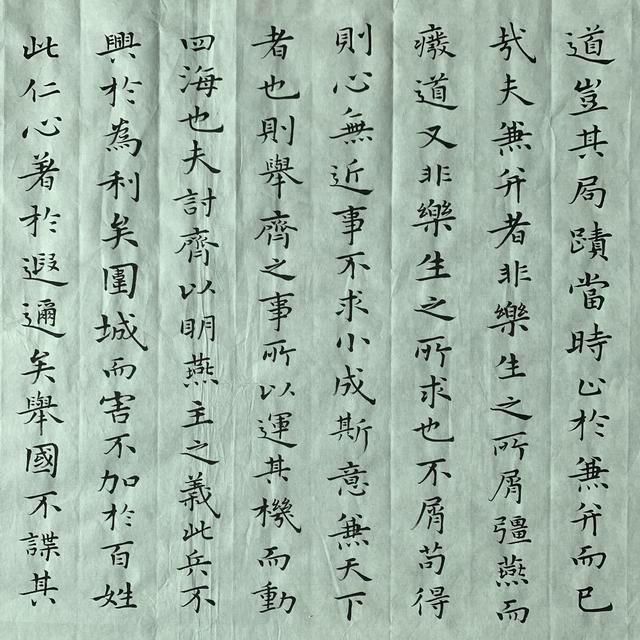 道豈其局蹟當時止於兼并而已
哉夫兼并者非樂生之所屑彊燕而
癈道又非樂生之所求也不屑苟得
則心無近事不求小成斯意兼天下
者也則舉齊之事所以運其機而動
四海也夫討齊以明燕主之義此兵不
興於為利矣圍城而害不加於百姓
此仁心著於遐邇矣舉國不謀其